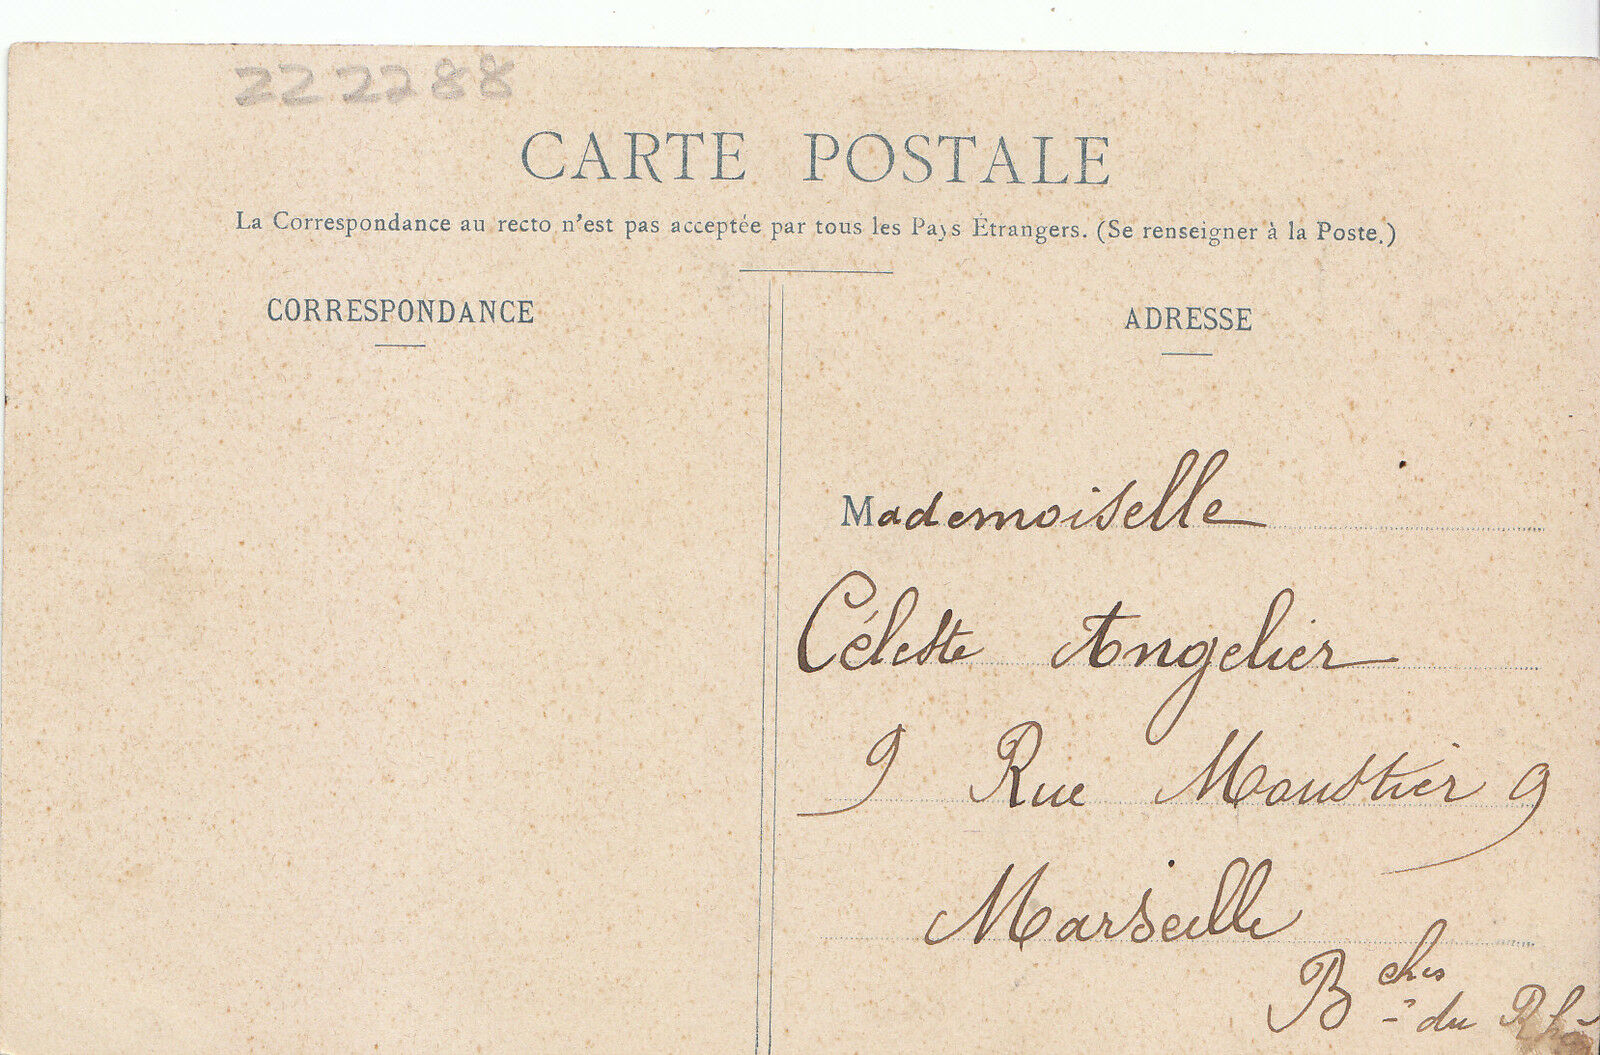 222288
CARTE POSTALE
La Correspondance au recto n'est pas acceptée par tous les Pays Étrangers. (Se renseigner à la Poste.)
CORRESPONDANCE
ADRESSE
Mademoiselle
Céleste Angelier
9 Rue Moustier 9
Marseille
Bches du Rhô